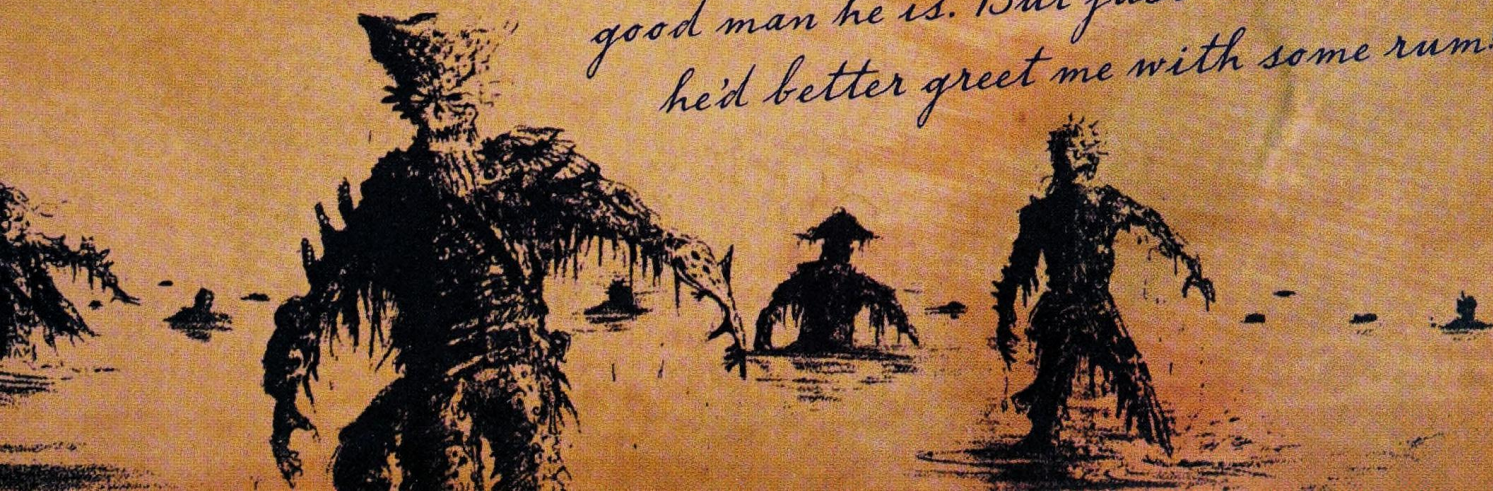 good man he is. But
he'd better greet me with some rum.